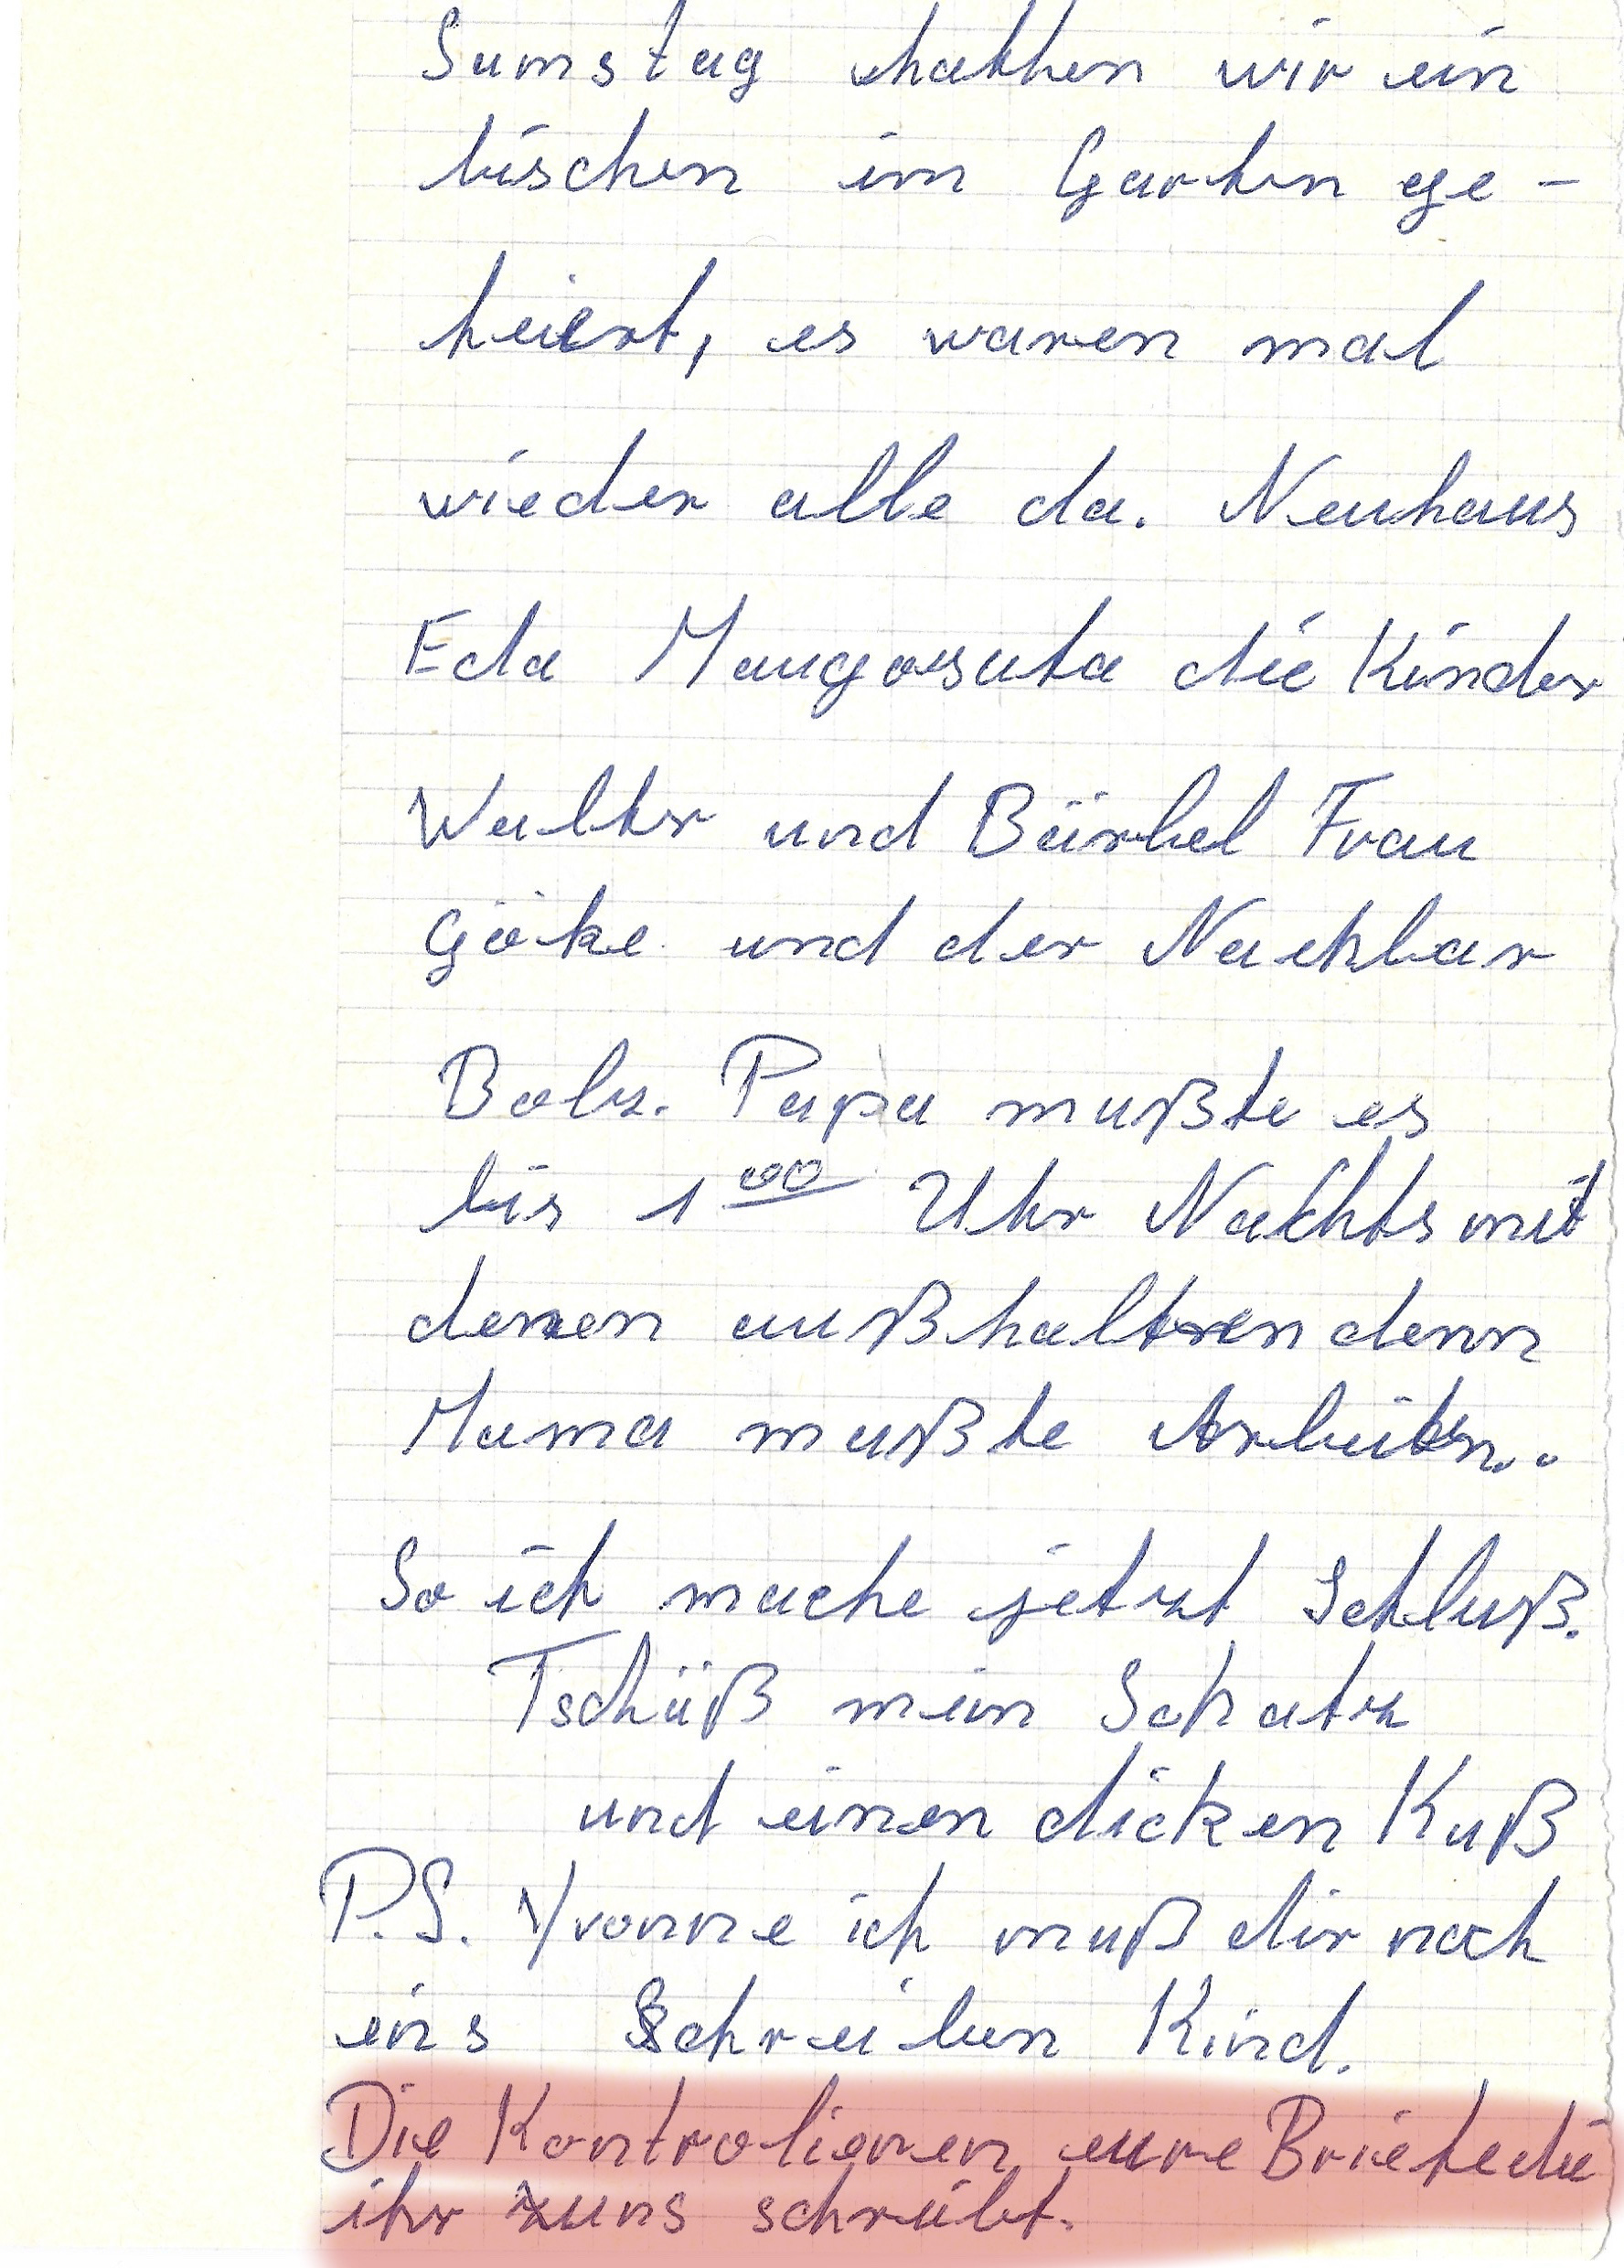 Samstag hatten wir ein
bischen im Garten ge-
feiert, es waren mal
wieder alle da. Neuhaus
Eda Maugosuta die Kinder
Walter und Bärbel Frau
Göke und der Nachbar
Bolz. Papa mußte es
bis 1⁰⁰ Uhr Nachts mit
denen außhalten denn
Mama mußte Arbeiten..
So ich mache jetzt Schluß.
Tschüß mein Schatz
und einen dicken Kuß
P.S. Yvonne ich muß dir noch
eins Schreiben Kind.
Die Kontrolieren eure Briefe die
ihr uns schreibt.